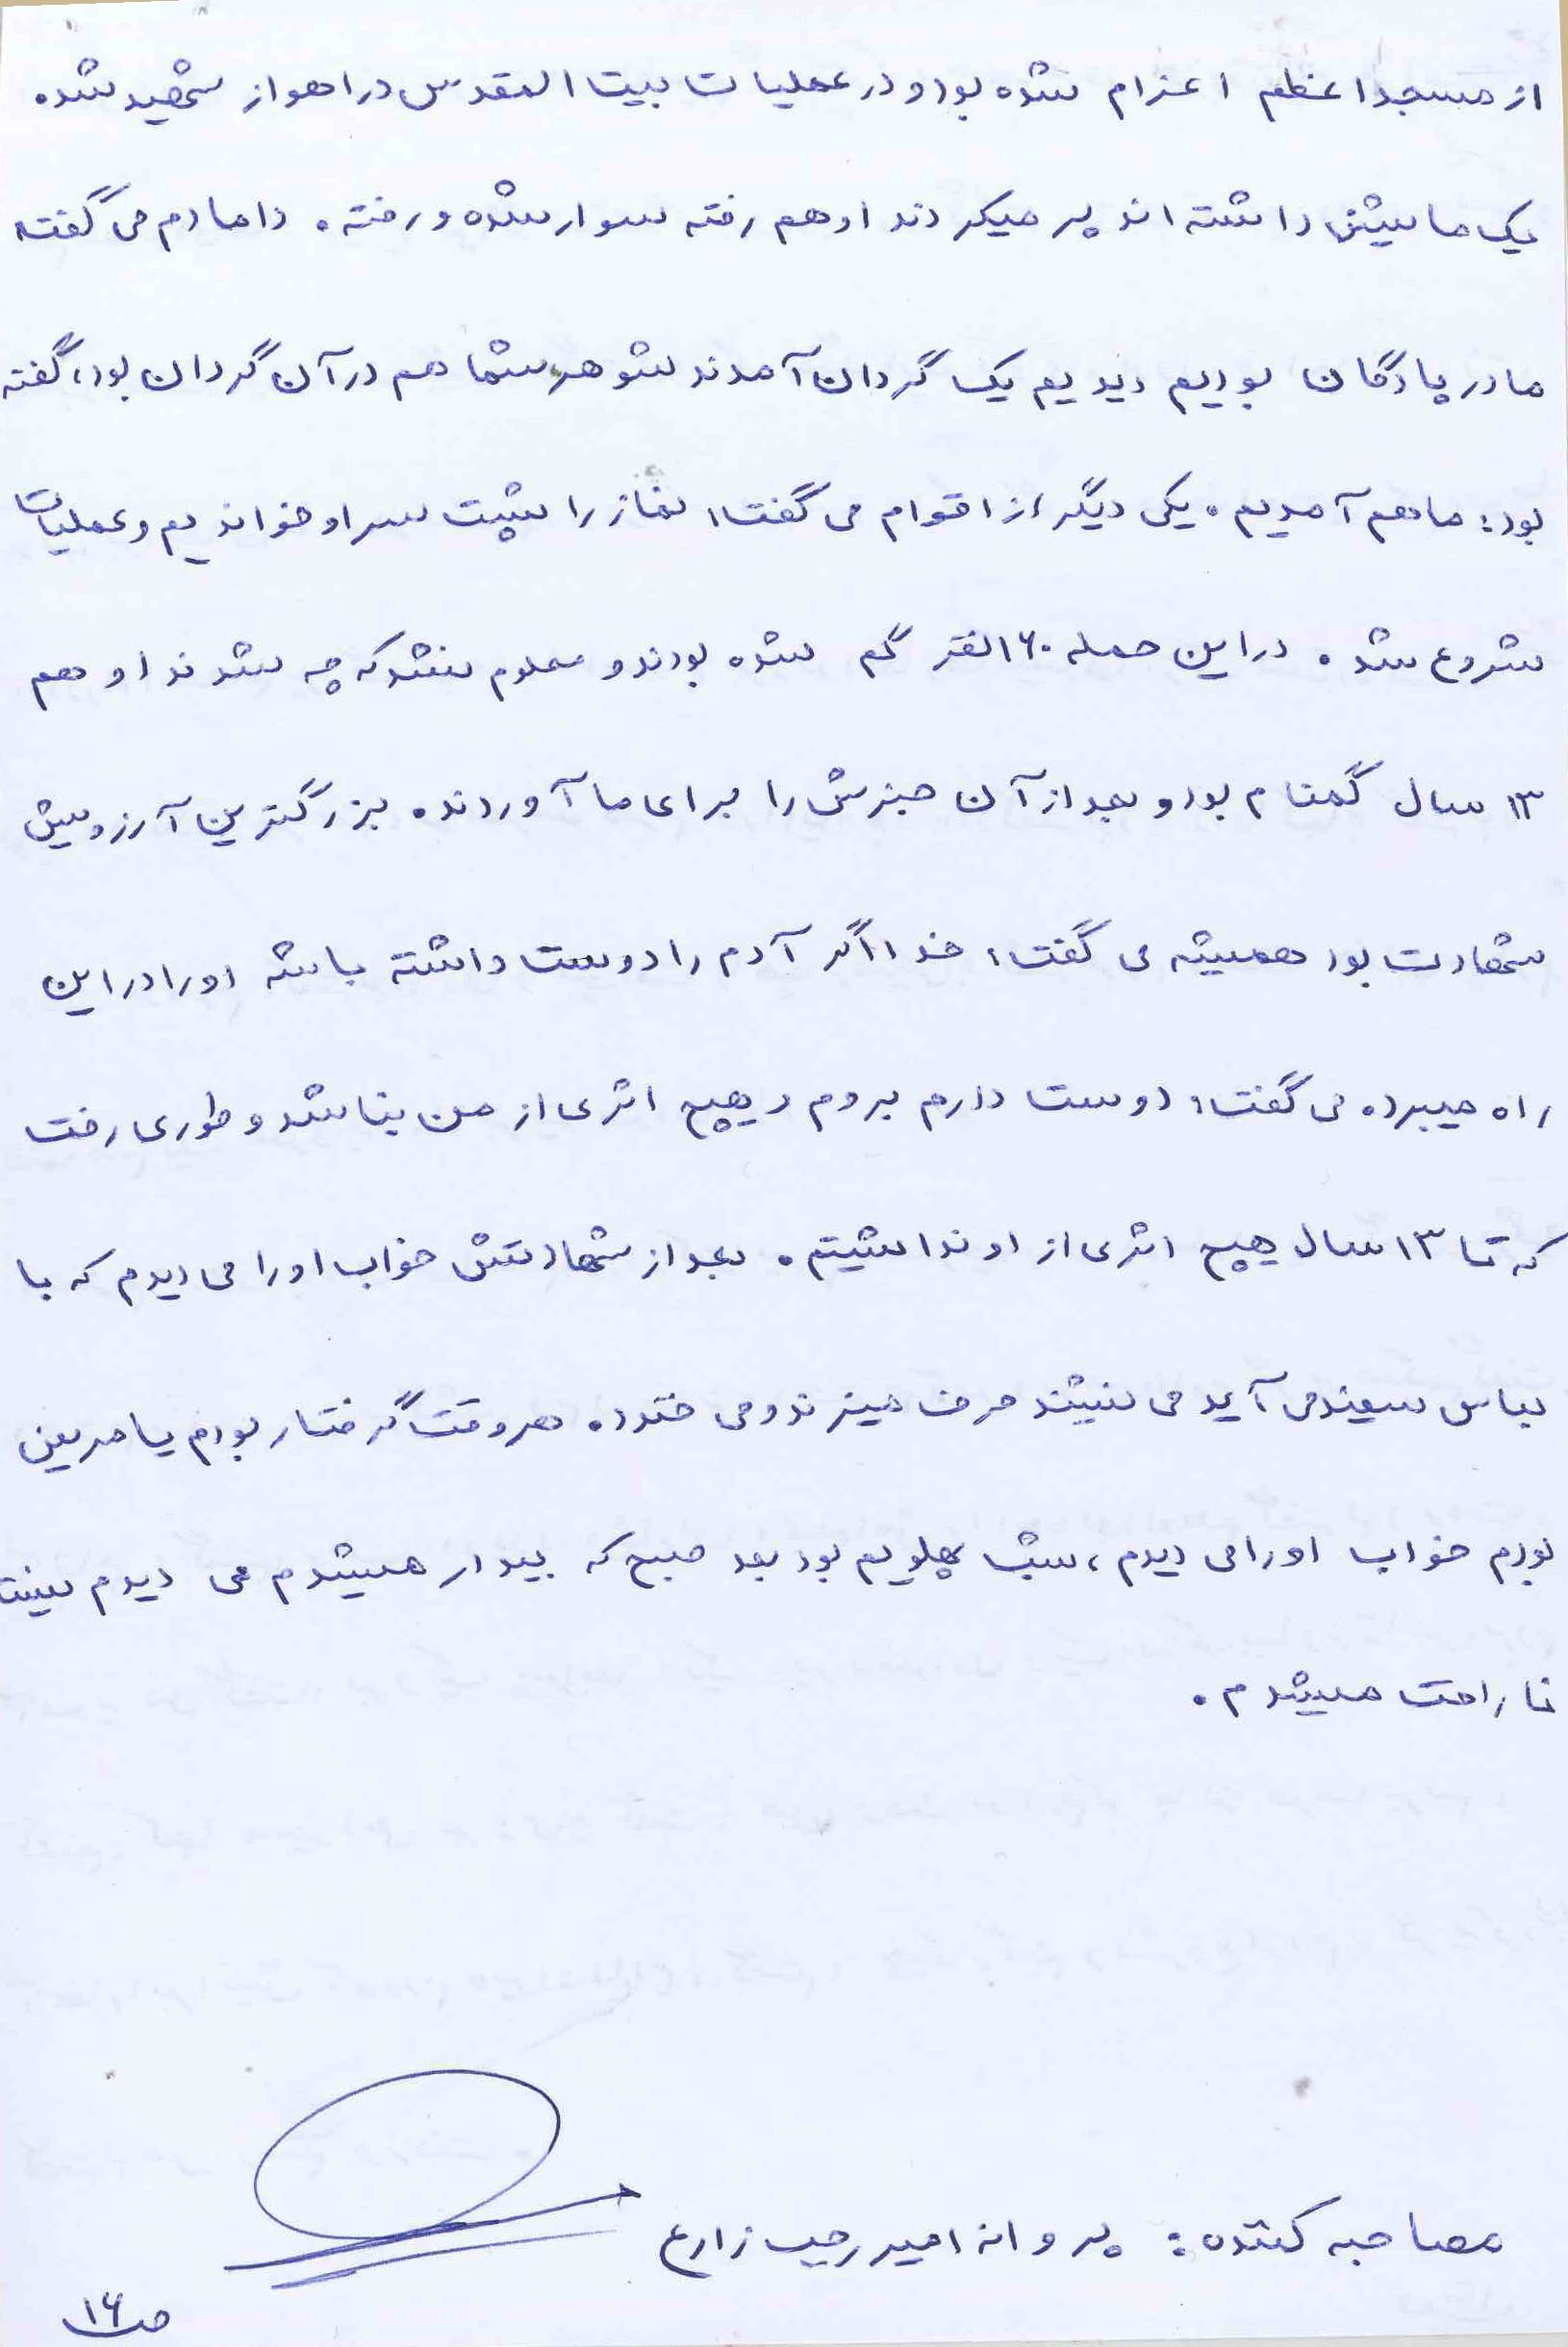 از مسجد اعظم اعزام شده بود و در عملیات بیت المقدس در اهواز شهید شده.
یک ماشین داشته اند پر میکردند او هم رفته سوار شده و رفته. دامادم می گفته
ما در پادگان بودیم دیدیم یک گردان آمدند شوهر شما هم در آن گردان بود، گفته
بود: ما هم آمدیم. یکی دیگر از اقوام می گفت: نماز را پشت سر او خواندیم و عملیات
شروع شد. در این حمله ۱۶۰ نفر گم شده بودند و معلوم نشد که چه شدند او هم
۱۳ سال گمنام بود و بعد از آن خبرش را برای ما آوردند. بزرگترین آرزویش
شهادت بود همیشه می گفت: خدا اگر آدم را دوست داشته باشه او را در این
راه میبرد. می گفت: دوست دارم بروم و هیچ اثری از من نباشد و طوری رفت
که تا ۱۳ سال هیچ اثری از او نداشتیم. بعد از شهادتش خواب او را می دیدم که با
لباس سفید می آید می نشیند حرف میزند و می خندد. هر وقت گرفتار بودم یا مریض
بودم خواب او را می دیدم، شب پهلویم بود بعد صبح که بیدار میشدم می دیدم نیست
ناراحت میشدم.
مصاحبه کننده: پروانه امیر رجب زارع
ص ۱۶